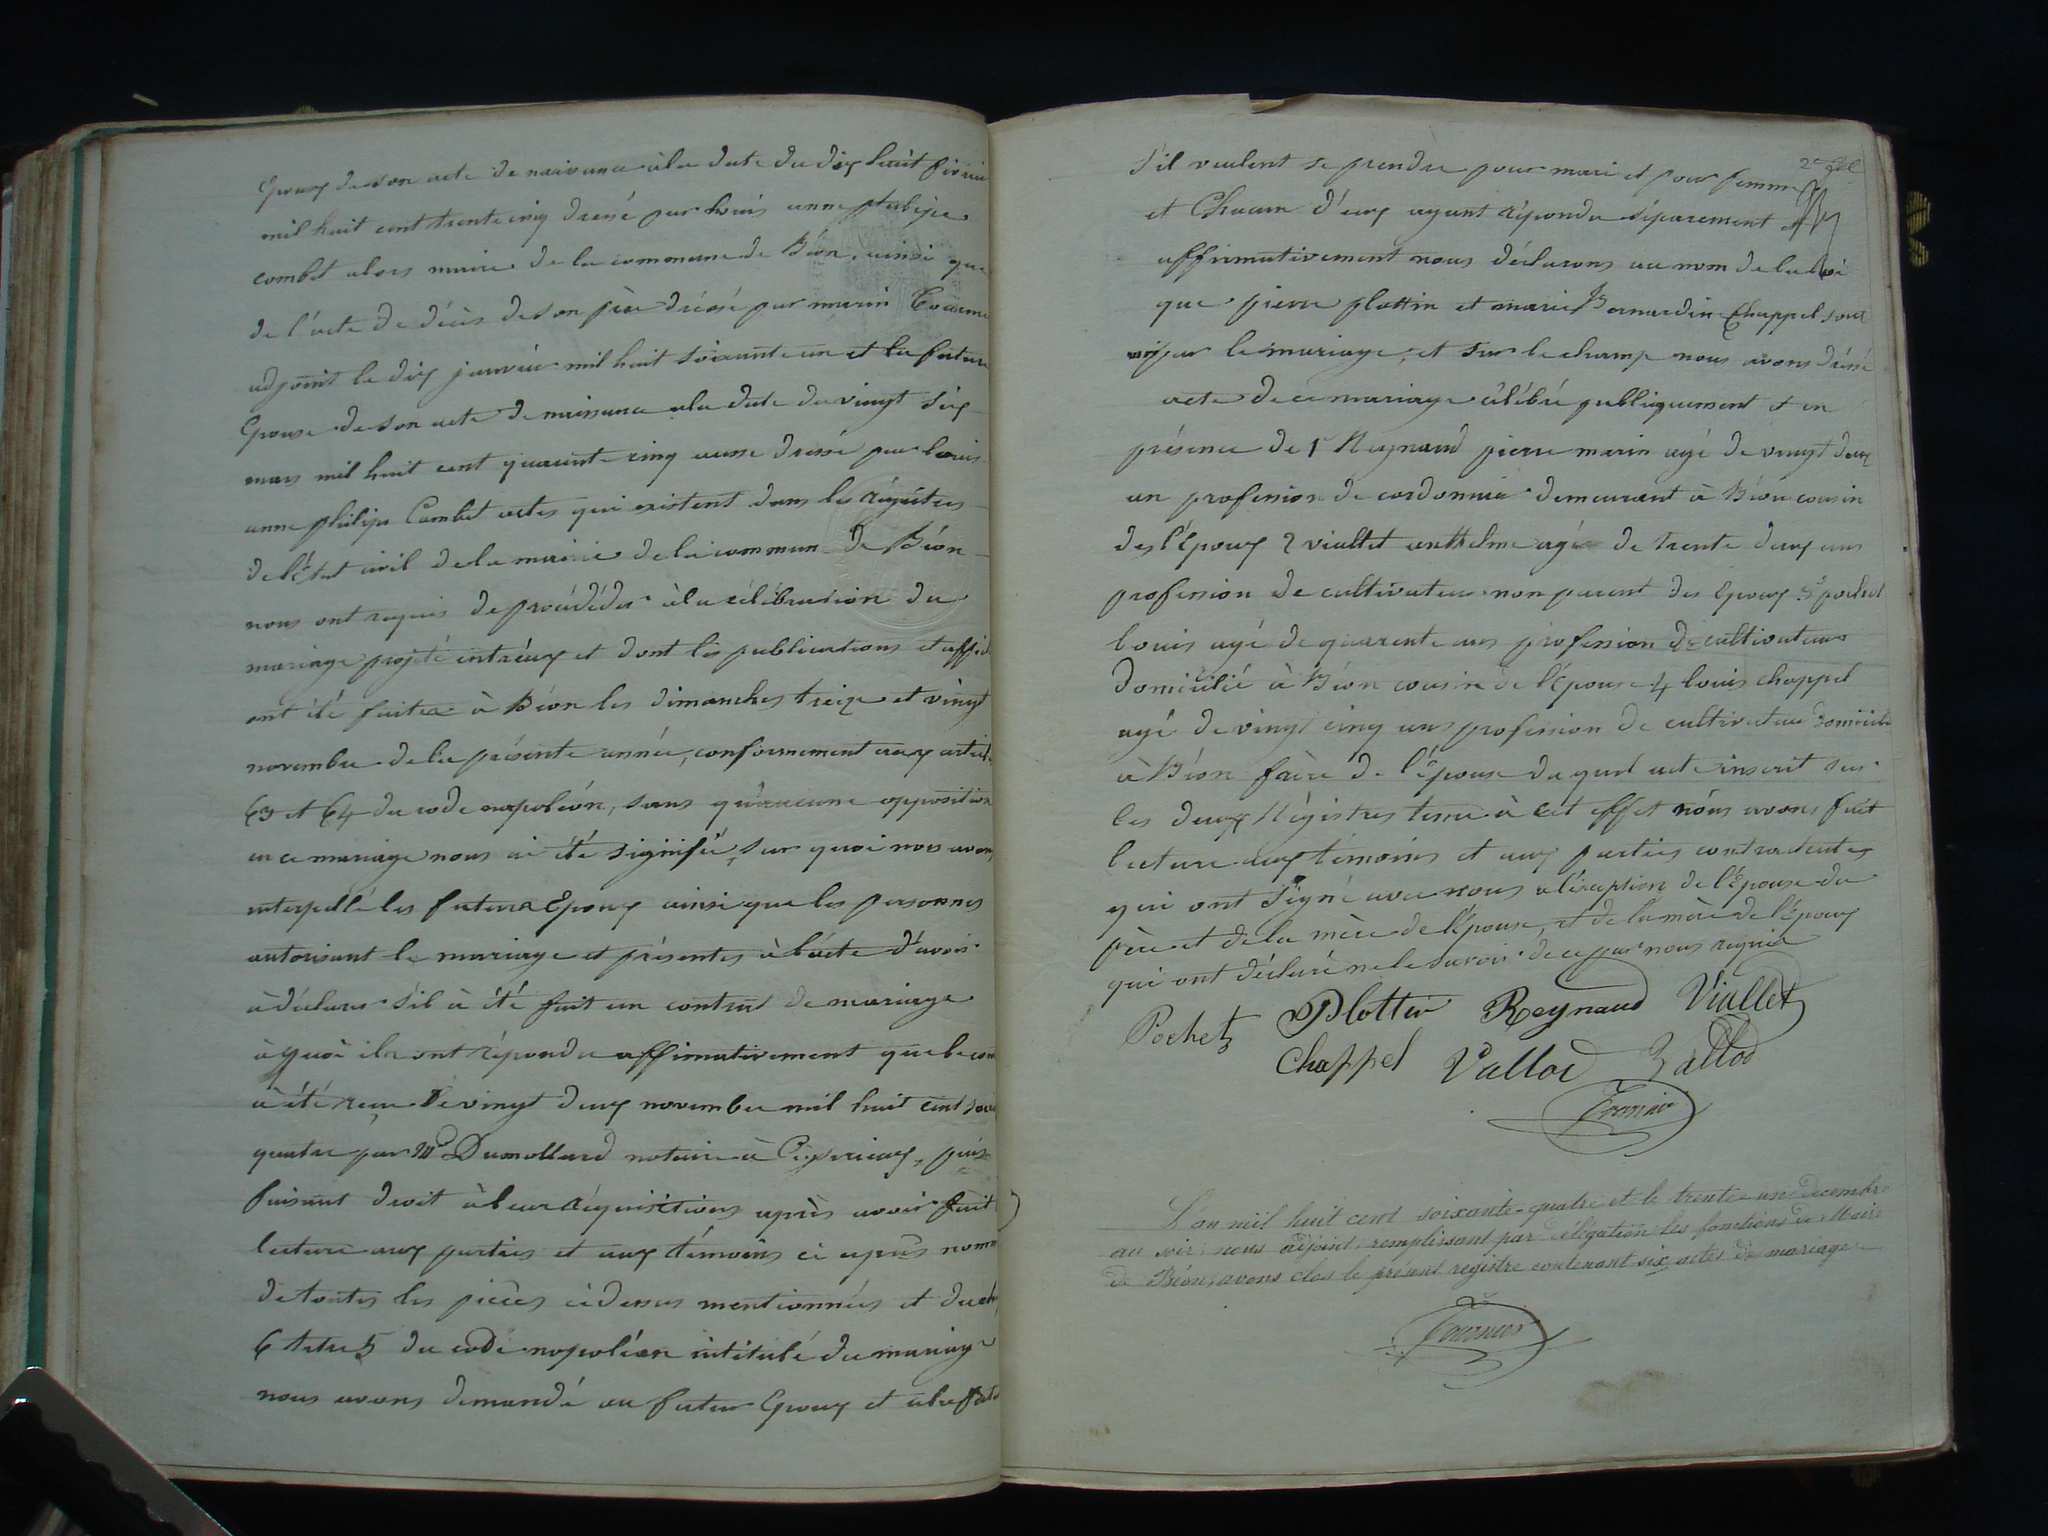 Epoux de son acte de naissance à la date du dix huit février
mil huit cent trente cinq dressé par louis anne philipe
combet alors maire de la commune de Béon, ainsi que
de l'acte de décès de son père dréssé par marin
adjoint le dix janvier mil huit soixante un et la future
Epouse de son acte de naissance a la date du vingt six
mars mil huit cent quarante cinq aussi dressé par louis
anne philipe Combet actes qui existent dans les régistres
de l'État civil de la mairie de la commun de Béon
nous ont requis de procédéder à la célébration du
mariage projeté entr'eux et dont les publications et affich
ont été faites à Béon les dimanches treize et vingt
novembre de la présente année, conformement aux articl
63 et 64 du code napoléon, sans qu'aucune opposition
a ce mariage nous ai été signifié, sur quoi nous avons
interpellé les futurs Epoux ainsi que les personnes
autorisant le mariage et présentes à l'acte d'avoir
à déclarer s'il à été fait un contrat de mariage
à quoi ils ont répondu affimativement que le con
à été reçu le vingt deux novembre mil huit cent soix
quatre par Me Dumollard notaire à puis
faisant droit à leur réquisitions après avoir fait
lecture aux parties et aux témoins ci après nomm
de toutes les pièces ci dessus mentionnées et du ch
6 titre 5 du code napoléon intitulé du mariage
nous avons demandé au futur Epoux et à la futu
2e
S'il veulent se prendre pour mari et pour femme
et Chacun d'eux ayant répondu séparement
affirmativement nous déclarons au nom de la loi
que pierre plottin et marie Bernardin Chappel sont
uni par le mariage, et sur le champ nous avons dréssé
acte de ce mariage célébré publiquement & en
présence de 1° Reynaud pierre marin agé de vingt deux
an profession de cordonnier demeurant à Béon cousin
de l'époux 2 viallet anthelme agé de trente deux ans
profession de cultivateur non parent des Epoux 3° pochet
louis agé de quarente ans profession de cultivateur
domicilié à Béon cousin de l'épouse 4 louis chappel
agé de vingt cinq ans profession de cultivateur domicilié
à Béon frère de l'épouse du quel acte inscrit sur
les deux Régistres tenu à cet effet nous avons fait
lecture aux témoins et aux parties contractentes
qui ont signé avec nous a l'éxeption de l'Épouse du
père et de la mère de l'épouse, et de la mère de l'époux
qui ont déclaré ne le savoir de ce par nous requis
Pochet Plottin Reynaud Viallet
Chappel Vallod Vallod
L'an mil huit cent soixante-quatre et le trente-un décembre
au soir, nous adjoint, remplissant par délégation les fonctions de Maire
de Béon, avons clos le présent registre contenant six actes de mariage